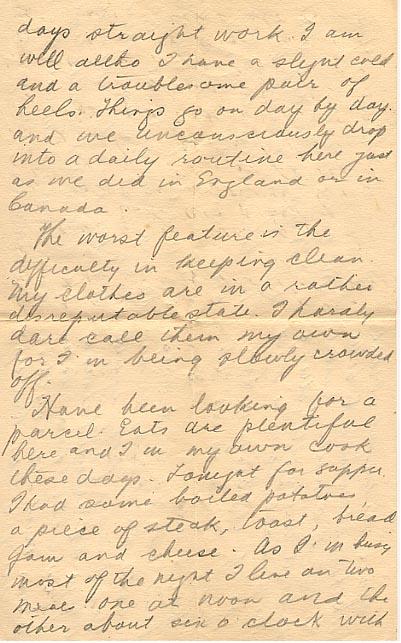 days straight work. I am
well altho I have a slight cold
and a troublesome pair of
heels. Things go on day by day
and we unconsciously drop
into a daily routine here just
as we did in England or in
Canada.
The worst feature is the
difficulty in keeping clean.
My clothes are in a rather
disreputable state. I hardly
dare call them my own
for I'm being slowly crowded
off.
Have been looking for a
parcel. Eats are plentiful
here and I'm my own cook
these days. Tonight for supper
I had some boiled potatoes
a piece of steak, toast, bread
jam and cheese. As I'm busy
most of the night I live on two
meals one at noon and the
other about six o clock with